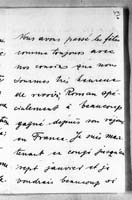 Nous avons passé les fêtes
comme toujours avec
nos cousins que nous
sommes très heureux
de revoir, Roman spé-
cialement a beaucoup
gagné depuis son séjour
en France. Je suis main-
tenant en congé jusqu'au
sept janvier et je
voudrais beaucoup